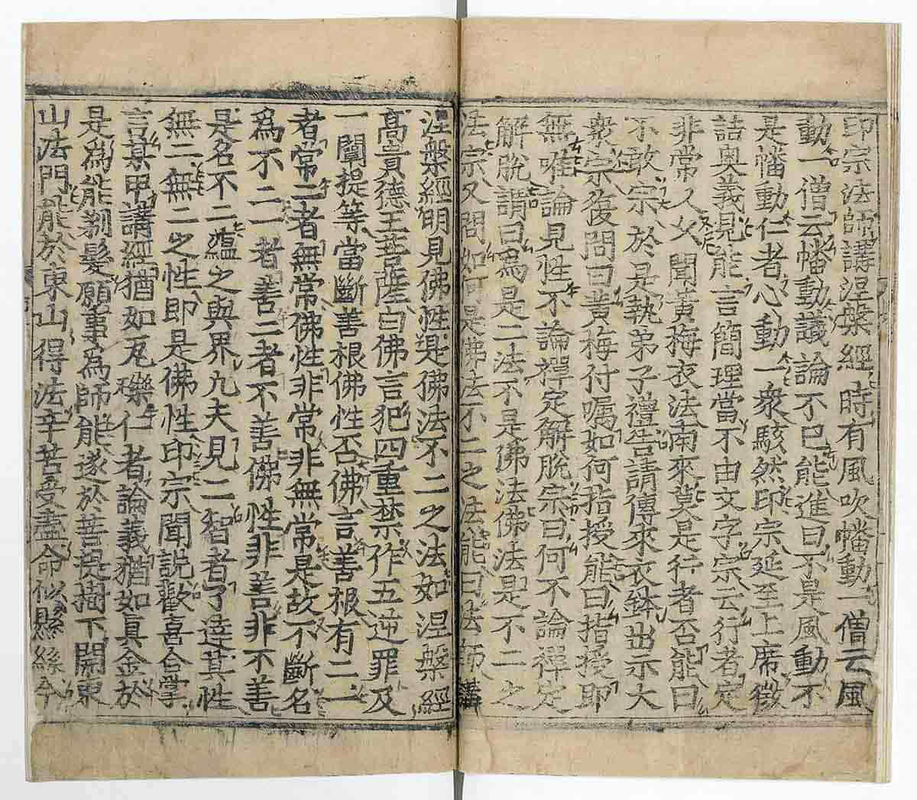 印宗法師講涅槃經時有風吹幡動一僧云風
動一僧云幡動議論不已能進曰不是風動不
是幡動仁者心動一衆駭然印宗延至上席徵
詰奧義見能言簡理當不由文字宗云行者定
非常人久聞黃梅衣法南來莫是行者否能曰
不敢宗於是執弟子禮告請傳來衣鉢出示大
衆宗復問曰黃梅付囑如何指授能曰指授即
無唯論見性不論禪定解脫宗曰何不論禪定
解脫謂曰為是二法不是佛法佛法是不二之
法宗又問如何是佛法不二之法能曰法師講
涅槃經明見佛性是佛法不二之法如涅槃經
高貴德王菩薩白佛言犯四重禁作五逆罪及
一闡提等當斷善根佛性否佛言善根有二一
者常二者無常佛性非常非無常是故不斷名
為不二一者善二者不善佛性非善非不善
是名不二蘊之與界凡夫見二智者了達其性
無二無二之性即是佛性印宗聞說歡喜合掌
言某甲講經猶如瓦礫仁者論義猶如真金於
是為能剃髮願事為師能遂於菩提樹下開東
山法門能於東山得法辛苦受盡命似懸絲今